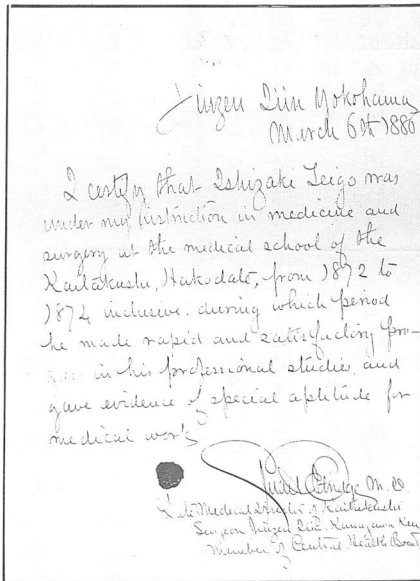 Juzen Iiin Yokohama
March 6th 1880
I certify that Ishizaki Teigo was
under my instruction in medicine and
surgery at the medical school of the
Kaitakushi, Hakodate, from 1872 to
1874 inclusive. during which period
he made rapid and satisfactory pro-
gress in his professional studies, and
gave evidence of special aptitude for
medical work
Stuart Eldridge M.D.
Late Medical Director of Kaitakushi
Surgeon Juzen Iiin. Kanagawa Ken
Member of Central Health Board